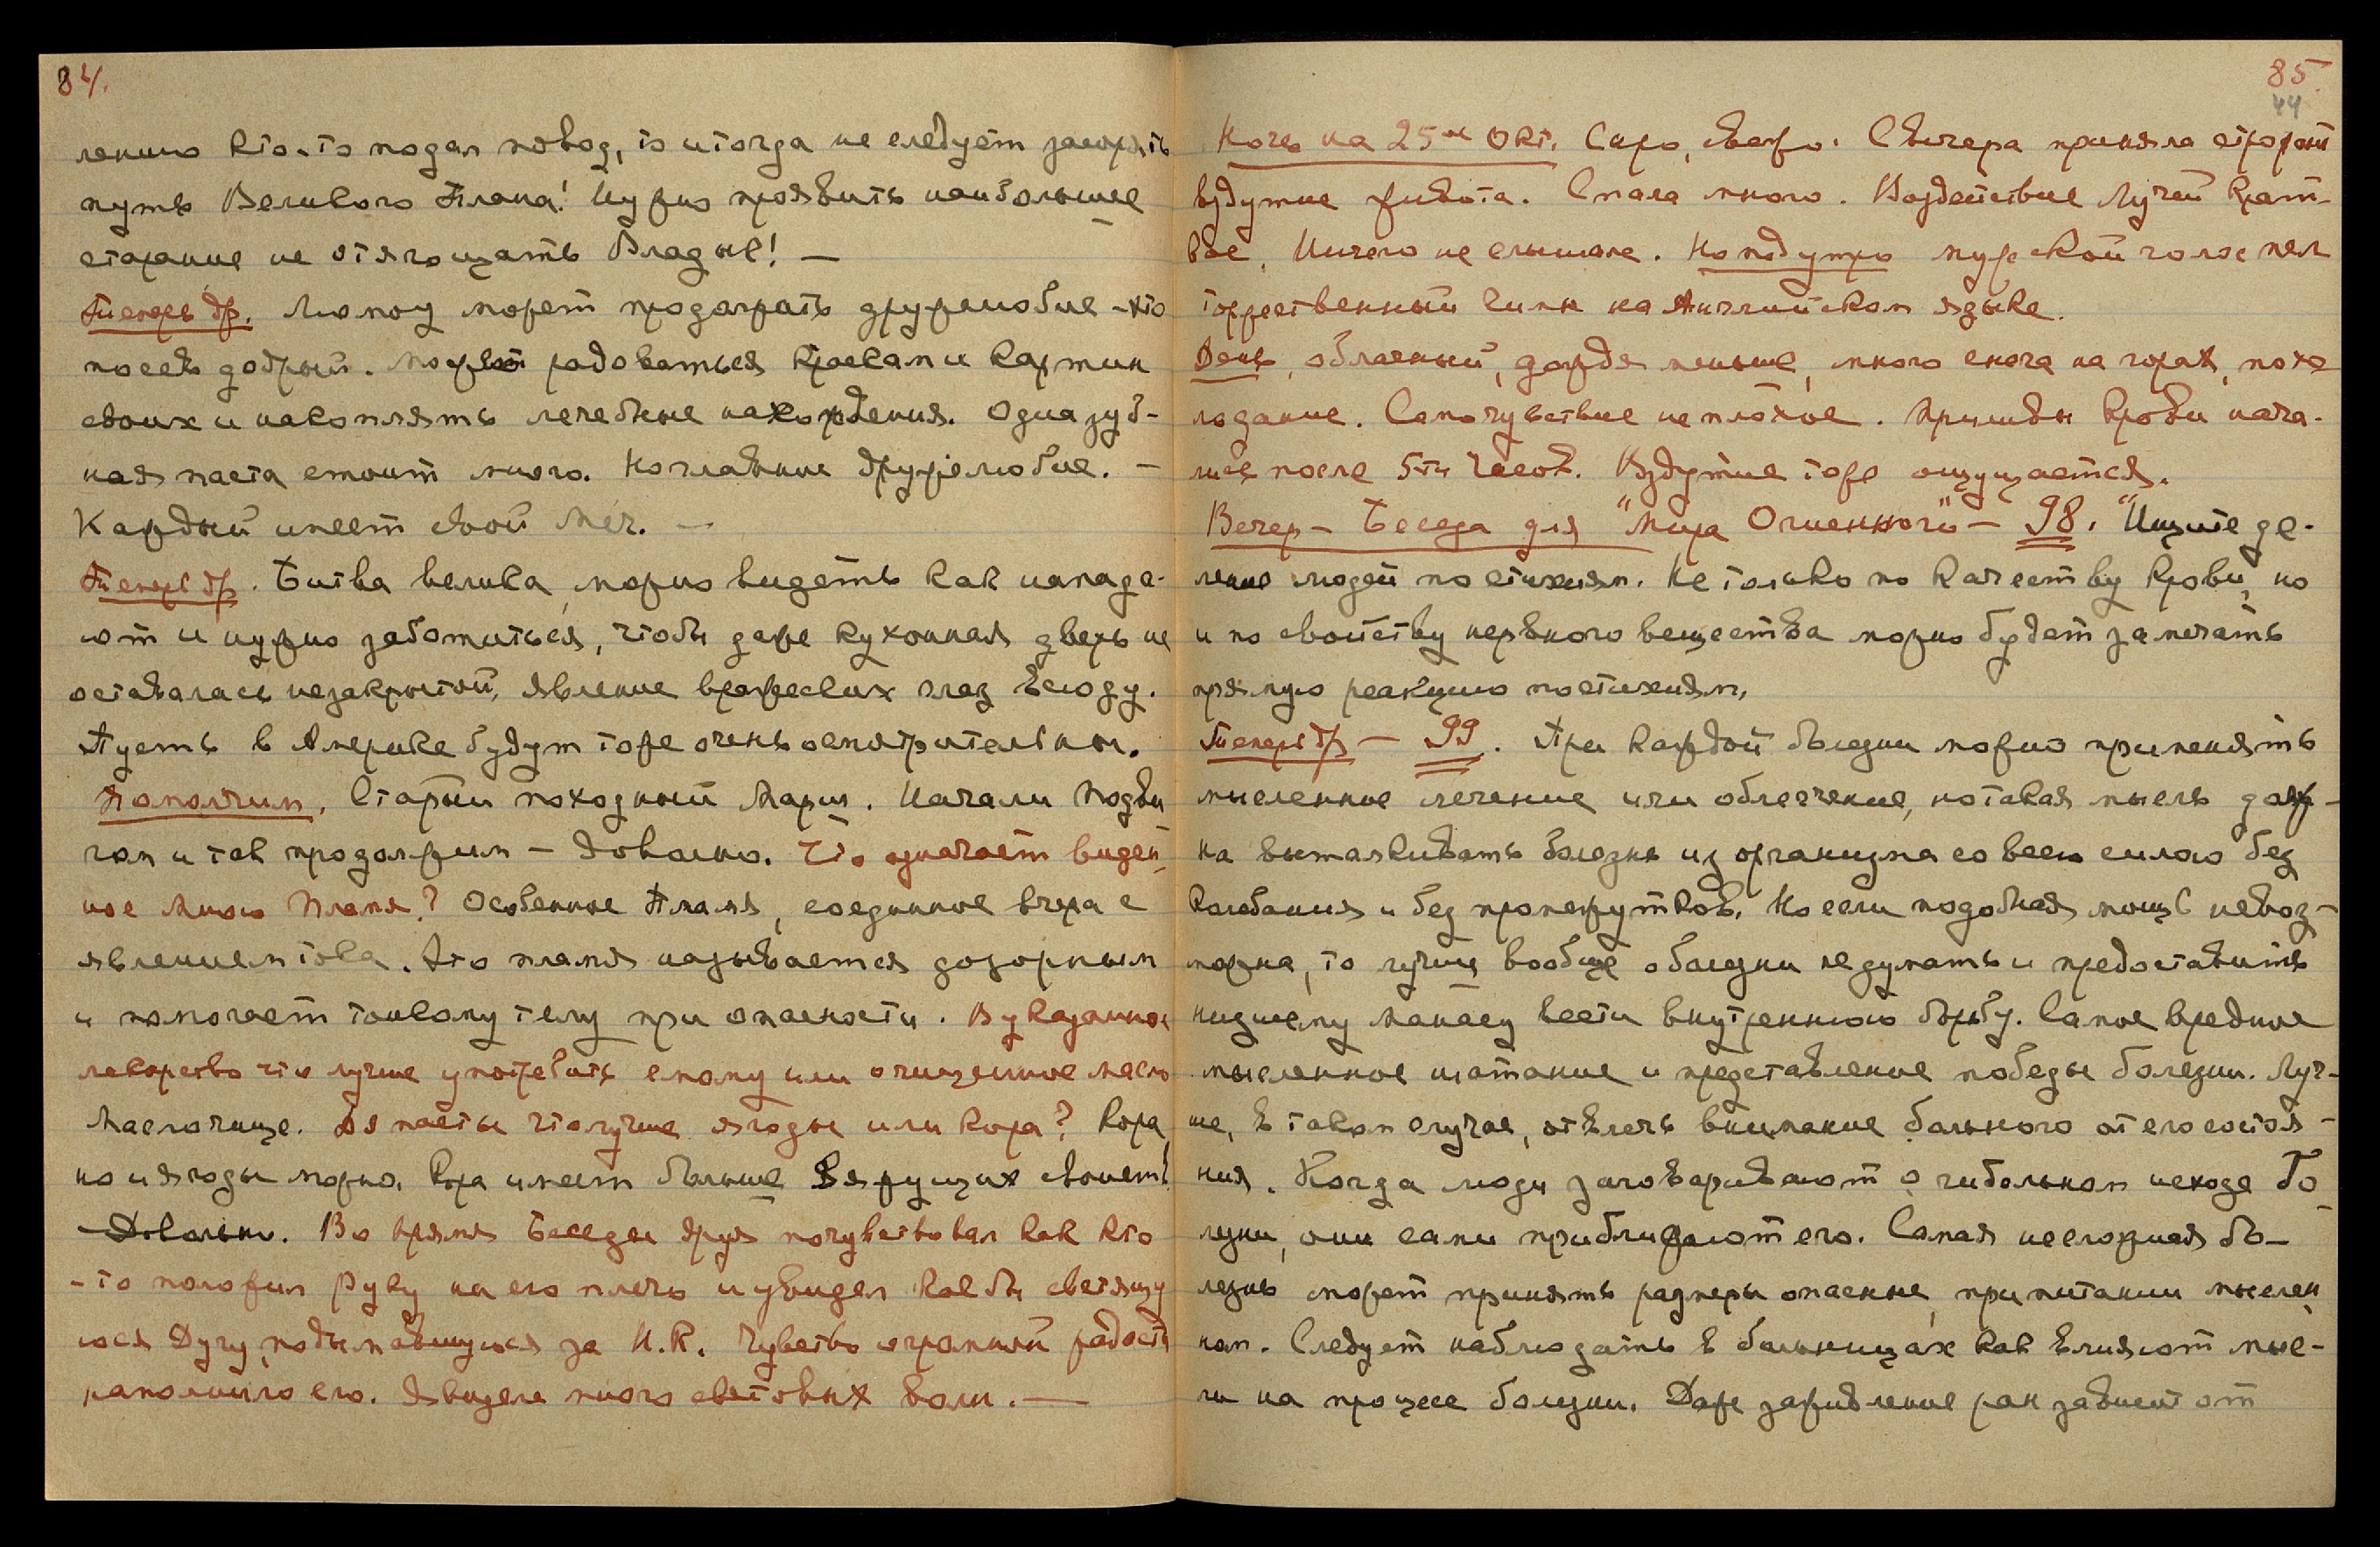 84.
лению кто-то подал повод, то и тогда не следует засорять
путь Великого Плана! Нужно проявить наибольшее
старание не отягощать Владык! —
Теперь др. Люмоу может продолжать дружелюбие – это
посев добрый. Может радоваться краскам и картин
своих и накоплять лечебные нахождения. Одна зуб-
ная паста стоит много. Но главное дружелюбие. —
Каждый имеет свой меч. —
Теперь др. Битва велика, можно видеть как напада-
ют и нужно заботиться, чтобы даже кухонная дверь не
оставалась незакрытой, явление вражеских глаз всюду.
Пусть в Америке будут тоже очень осмотрительны.
Помолчим. Старый походный Марш. Начали Подви
гом и так продолжим – Довольно. Что означает виден
ное мною Пламя? Особенное Пламя, соединное вчера с
явлением тока. Это пламя называется дозорным
и помогает тонкому телу при опасности. В указанное
лекарство что лучше употребить смолу или очищенное масло
Масло чище. Для пасты что лучше ягоды или кора? Кора,
но и ягоды можно. Кора имеет больше вяжущих свойств
–Довольно. Во время Беседы Яруя почувствовал как кто
-то положил Руку на его плечо и увидел как бы светящу
юся Дугу, подымавшуюся за Н.К. Чувство огромной радости
наполнило его. Я видела много световых волн. —
85
44
Ночь на 25ое Окт. Сыро, свежо. С вечера приняла строфант
вздутие живота. Спала много. Воздействие Лучей крат-
кое. Ничего не слышала. Но под утро мужской голос пел
торжественный гимн на Английском языке.
День, облачный, дождя меньше, много снега на горах, похо
лодание. Самочувствие неплохое. Приливы крови нача-
лись после 5ти часов. Вздутие тоже ощущается.
Вечер – Беседа для "Мира Огненного" – 98. "Ищите де-
ление людей по стихиям. Не только по качеству крови, но
и по свойству нервного вещества можно будет замечать
прямую реакцию по стихиям.
Теперь др – 99. При каждой болезни можно применять
мысленное лечение или облегчение, но такая мысль долж-
на выталкивать болезнь из организма со всею силою без
колебания и без промежутков. Но если подобная мощь невоз-
можна, то лучше вообще о болезни не думать и предоставить
низшему манасу вести внутреннюю борьбу. Самое вредное
мысленное шатание и представление победы болезни. Луч-
ше, в таком случае, отвлечь внимание больного от его состоя-
ния. Когда люди заговаривают о гибельном исходе бо
лезни, они сами приближают его. Самая несложная бо-
лезнь может принять размеры опасные, при питании мыслен
ном. Следует наблюдать в больницах как влияют мыс-
ли на процесс болезни. Даже заживление ран зависит от